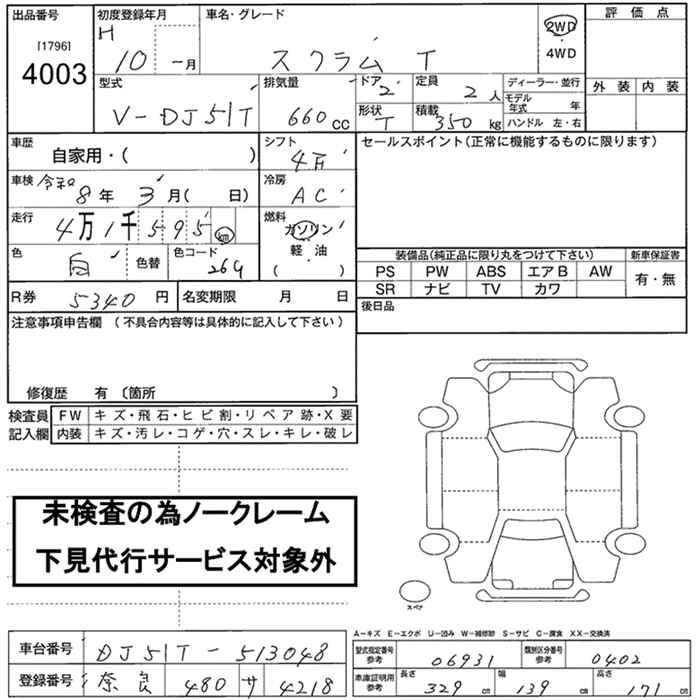 出品番号
[1796]
4003
初度登録年月
H 10 - 月
車名・グレード
スクラム T
2WD
・
4WD
評価点
外装 内装
型式
V-DJ51T
排気量
660 cc
ドア
2
定員
2 人
形状
T
積載
350 kg
ディーラー・並行
モデル年式 年
ハンドル 左・右
車歴
自家用・( )
シフト
車検 令和 8 年 3 月( 日)
冷房
AC
走行
4万1千595 km
燃料
ガソリン
・
軽・油
( )
色
白
色替
色コード
26G
R券 5340 円
名変期限 月 日
セールスポイント(正常に機能するものに限ります)
装備品(純正品に限り丸をつけて下さい)
新車保証書
PS PW ABS エアB AW
SR ナビ TV カワ
有・無
後日品
注意事項申告欄 (不具合内容等は具体的に記入して下さい)
修復歴 有 〔箇所 〕
検査員記入欄
FW キズ・飛石・ヒビ割・リペア跡・X要
内装 キズ・汚レ・コゲ・穴・スレ・キレ・破レ
未検査の為ノークレーム
下見代行サービス対象外
スペア
A-キズ E-エクボ U-凹み W-補修跡 S-サビ C-腐食 XX-交換済
車台番号 DJ51T-513048
登録番号 奈良 480 サ 4218
型式指定番号参考 06931
類別区分番号参考 0402
車庫証明用参考
長さ 329 cm
幅 139 cm
高さ 171 cm